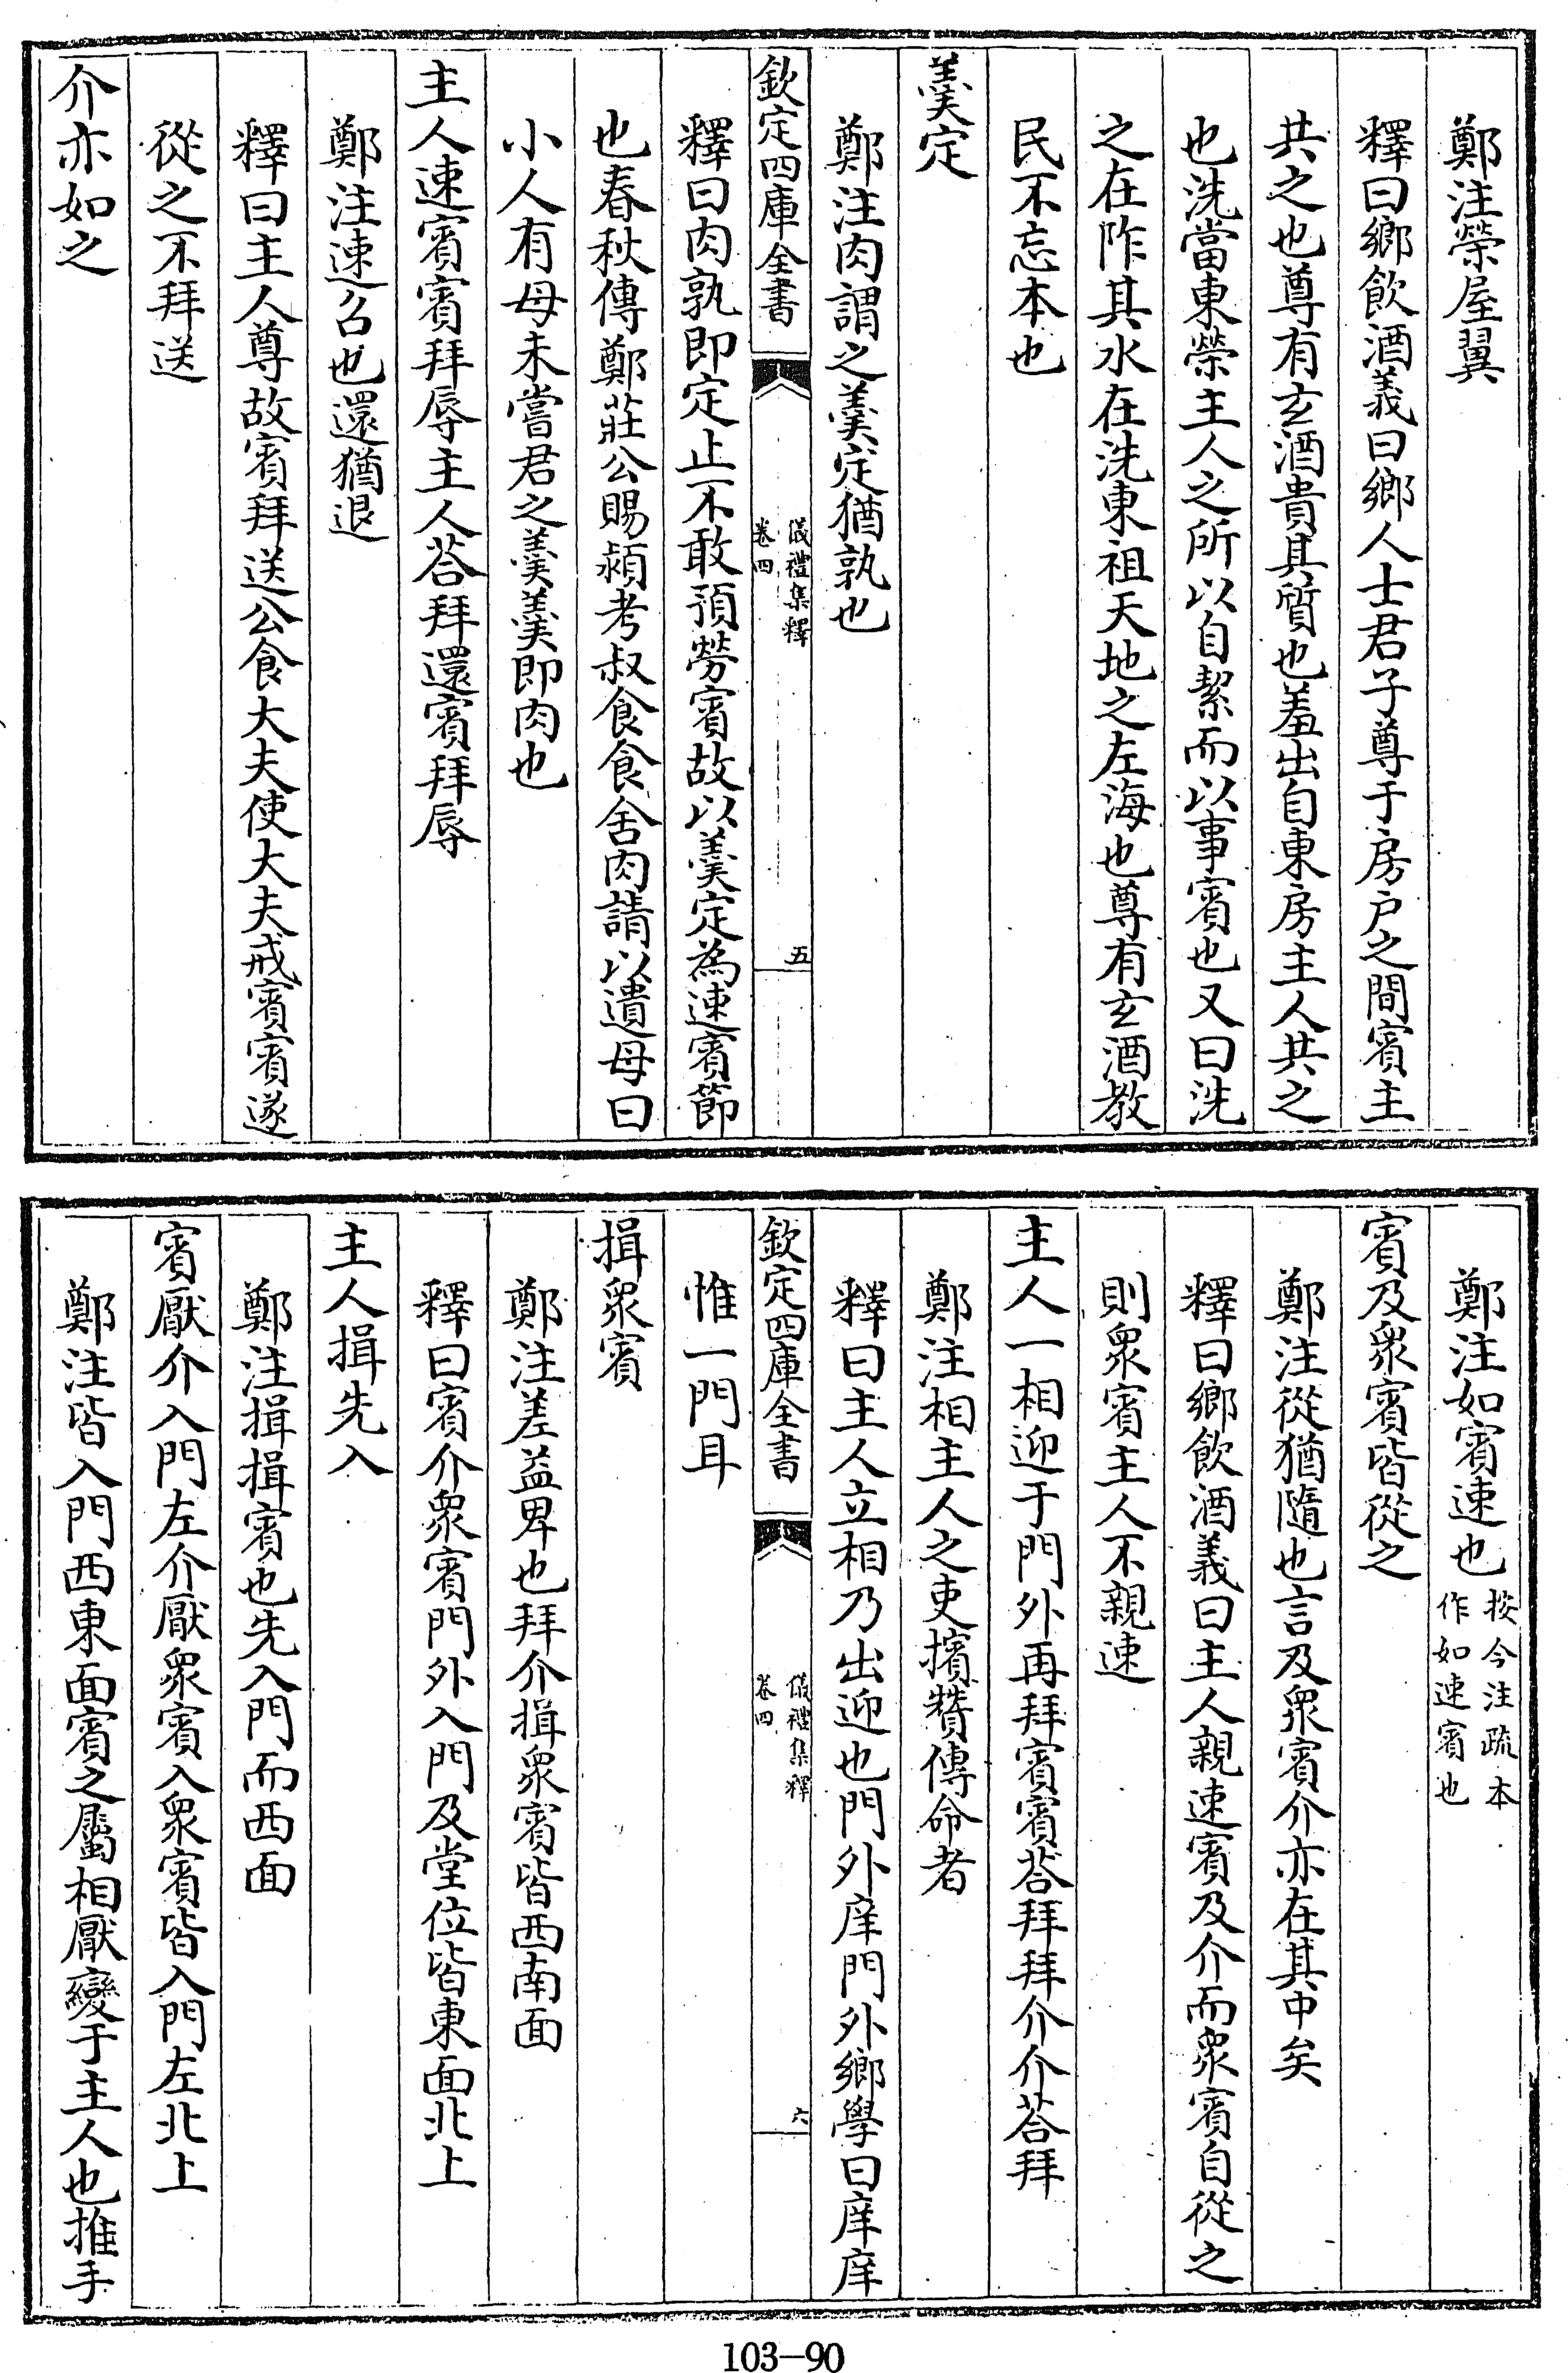 鄭注榮屋翼
釋曰鄉飲酒義曰鄉人士君子尊于房户之間賓主
共之也尊有玄酒貴其質也羞出自東房主人共之
也洗當東榮主人之所以自絜而以事賓也又曰洗
之在阼其水在洗東祖天地之左海也尊有玄酒教
民不忘本也
羹定
鄭注肉謂之羹定猶孰也
欽定四庫全書
儀禮集釋
卷四
五
釋曰肉孰即定止不敢預勞賓故以羹定為速賓節
也春秋傳鄭莊公賜潁考叔食食舍肉請以遺母曰
小人有母未嘗君之羹羹即肉也
主人速賓賓拜辱主人荅拜還賓拜辱
鄭注速召也還猶退
釋曰主人尊故賓拜送公食大夫使大夫戒賓賓遂
從之不拜送
介亦如之
鄭注如賓速也
按今注疏本
作如速賓也
賓及衆賓皆從之
鄭注從猶隨也言及衆賓介亦在其中矣
釋曰鄉飲酒義曰主人親速賓及介而衆賓自從之
則衆賓主人不親速
主人一相迎于門外再拜賓賓荅拜拜介介荅拜
鄭注相主人之吏擯贊傳命者
釋曰主人立相乃出迎也門外庠門外鄉學曰庠庠
欽定四庫全書
儀禮集釋
卷四
六
惟一門耳
揖衆賓
鄭注差益卑也拜介揖衆賓皆西南面
釋曰賓介衆賓門外入門及堂位皆東面北上
主人揖先入
鄭注揖揖賓也先入門而西面
賓厭介入門左介厭衆賓入衆賓皆入門左北上
鄭注皆入門西東面賓之屬相厭變于主人也推手
103-90